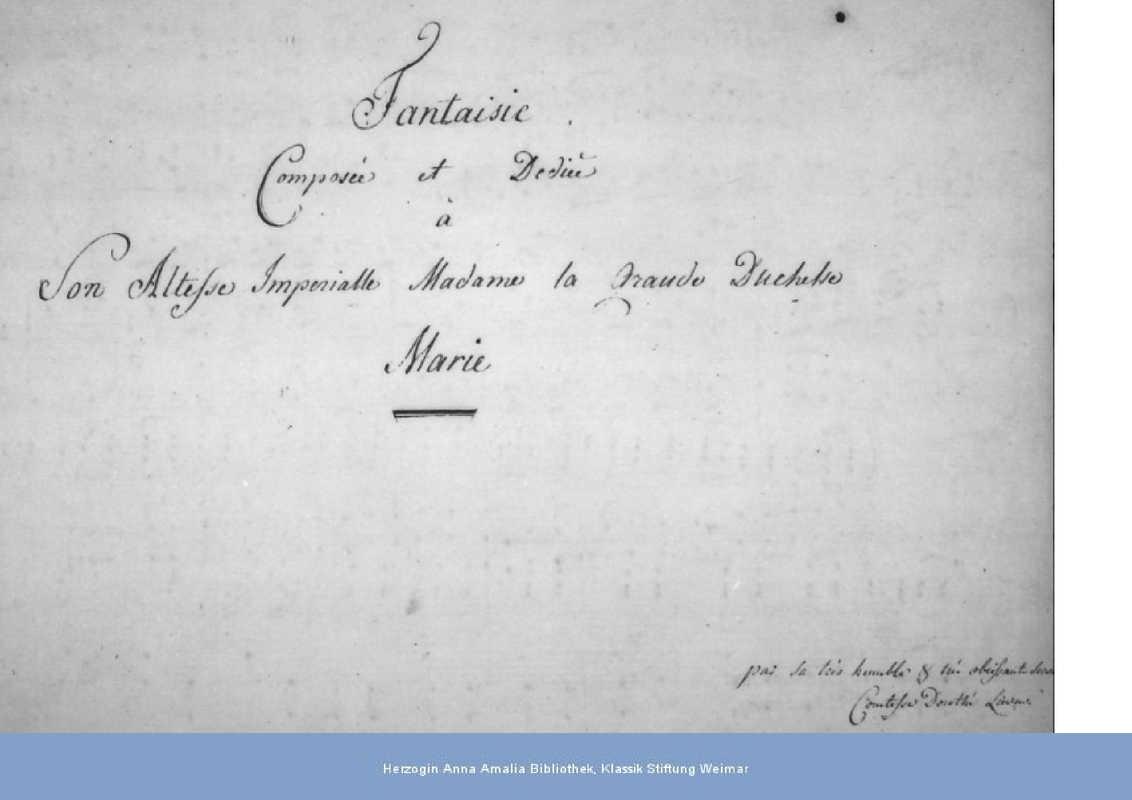 Fantaisie.
Composée et Dediée
à
Son Altesse Imperialle Madame la Grande Duchesse
Marie
par sa très humble & très obéissante
Comtesse Dorothé
Herzogin Anna Amalia Bibliothek, Klassik Stiftung Weimar